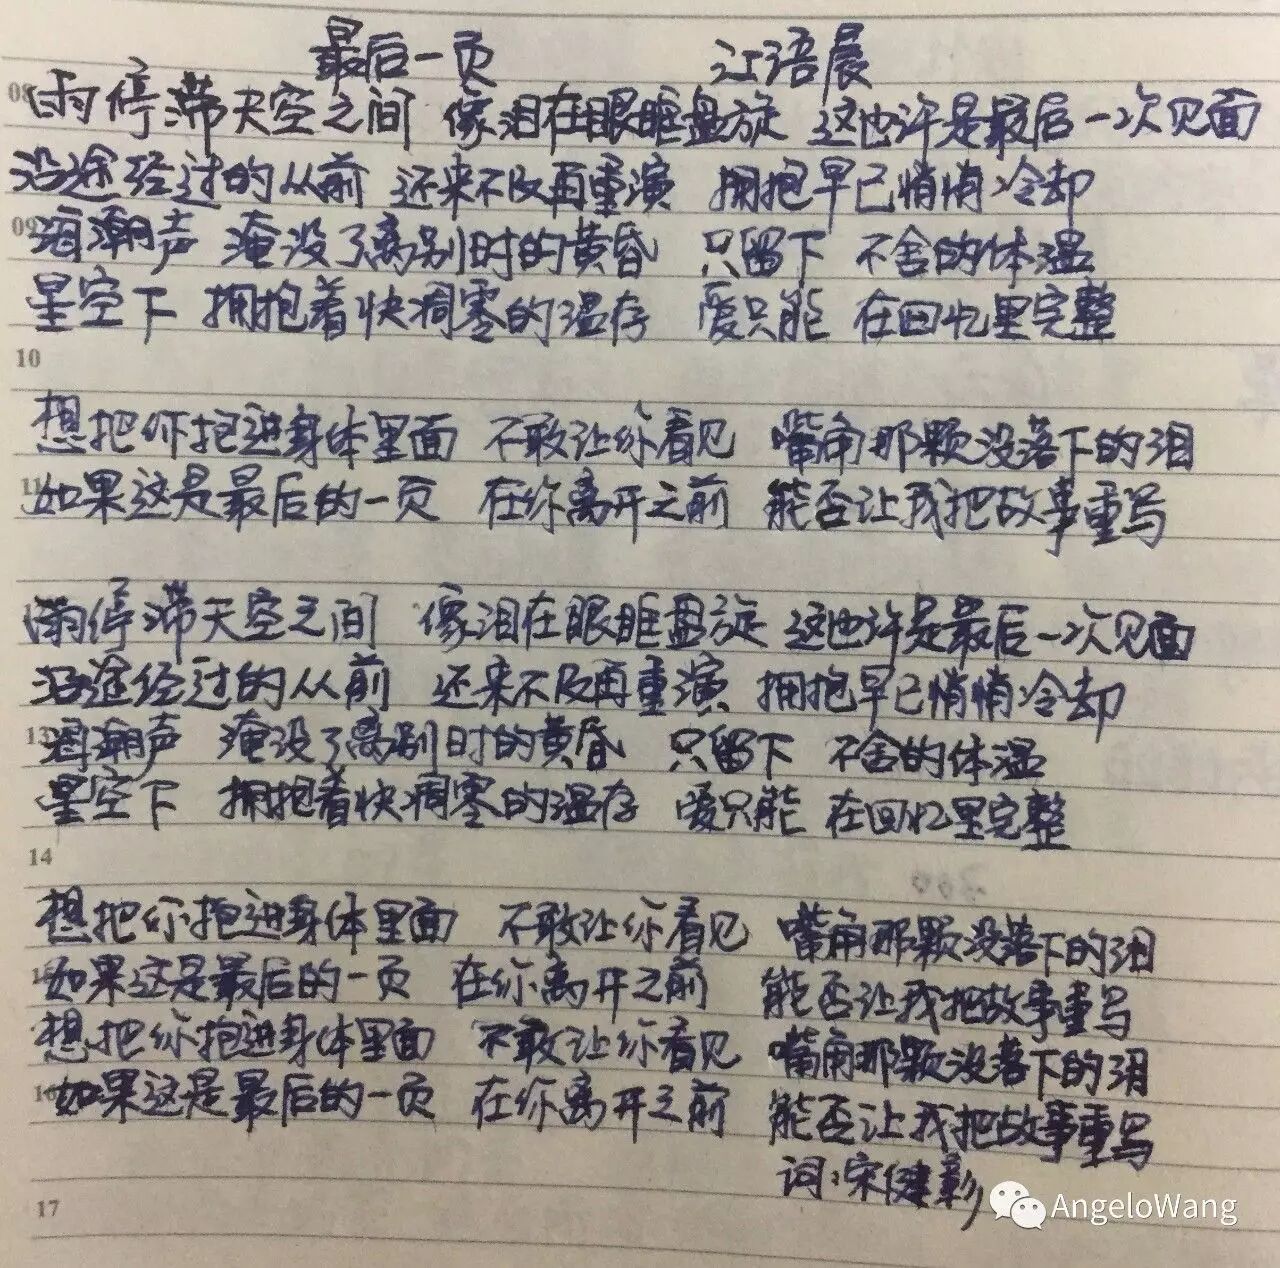 最后一页 江语晨
08 雨停滞天空之间 像泪在眼眶盘旋 这也许是最后一次见面
沿途经过的从前 还来不及再重演 拥抱早已悄悄冷却
09 海潮声 淹没了离别时的黄昏 只留下 不舍的体温
星空下 拥抱着快凋零的温存 爱只能 在回忆里完整
10
想把你抱进身体里面 不敢让你看见 嘴角那颗没落下的泪
11 如果这是最后的一页 在你离开之前 能否让我把故事重写
雨停滞天空之间 像泪在眼眶盘旋 这也许是最后一次见面
沿途经过的从前 还来不及再重演 拥抱早已悄悄冷却
13 海潮声 淹没了离别时的黄昏 只留下 不舍的体温
星空下 拥抱着快凋零的温存 爱只能 在回忆里完整
14
想把你抱进身体里面 不敢让你看见 嘴角那颗没落下的泪
15 如果这是最后的一页 在你离开之前 能否让我把故事重写
想把你抱进身体里面 不敢让你看见 嘴角那颗没落下的泪
16 如果这是最后的一页 在你离开之前 能否让我把故事重写
词:宋健彰
17
AngeloWang